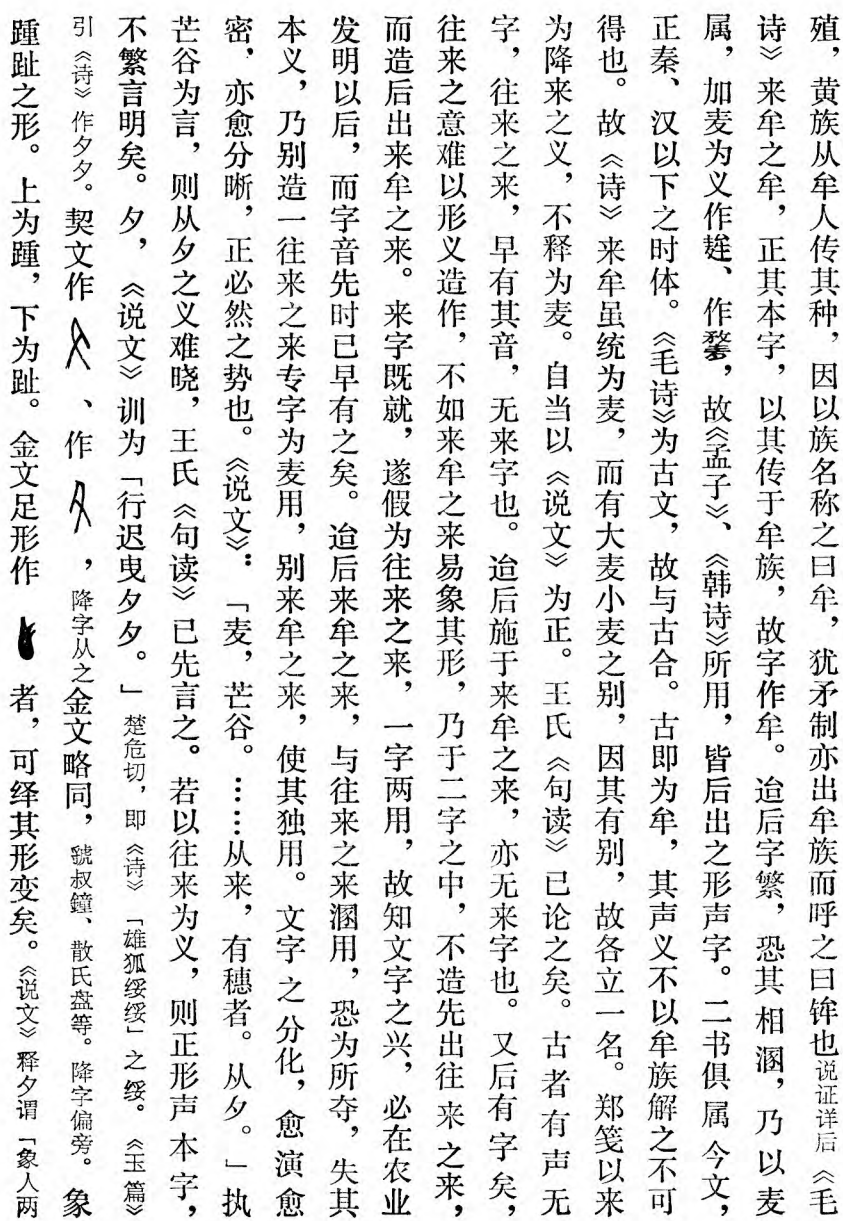 殖，黄族从牟人传其种，因以族名称之曰牟，犹矛制亦出牟族而呼之曰鉾也说证详后《毛
诗》来牟之牟，正其本字，以其传于牟族，故字作牟。迨后字繁，恐其相溷，乃以麦
属，加麦为义作䴴、作，故《孟子》、《韩诗》所用，皆后出之形声字。二书俱属今文，
正秦、汉以下之时体。《毛诗》为古文，故与古合。古即为牟，其声义不以牟族解之不可
得也。故《诗》来牟虽统为麦，而有大麦小麦之别，因其有别，故各立一名。郑笺以来
为降来之义，不释为麦。自当以《说文》为正。王氏《句读》已论之矣。古者有声无
字，往来之来，早有其音，无来字也。迨后施于来牟之来，亦无来字也。又后有字矣，
往来之意难以形义造作，不如来牟之来易象其形，乃于二字之中，不造先出往来之来，
而造后出来牟之来。来字既就，遂假为往来之来，一字两用，故知文字之兴，必在农业
发明以后，而字音先时已早有之矣。迨后来牟之来，与往来之来溷用，恐为所夺，失其
本义，乃别造一往来之来专字为麦用，别来牟之来，使其独用。文字之分化，愈演愈
密，亦愈分晰，正必然之势也。《说文》：「麦，芒谷。……从来，有穗者。从夊。」执
芒谷为言，则从夊之义难晓，王氏《句读》已先言之。若以往来为义，则正形声本字，
不繁言明矣。夊，《说文》训为「行迟曳夊夊。」楚危切，即《诗》「雄狐绥绥」之绥。《玉篇》
引《诗》作夊夊。契文作、作，降字从之金文略同，虢叔鐘、散氏盘等。降字偏旁。象
踵趾之形。上为踵，下为趾。金文足形作者，可绎其形变矣。《说文》释夊谓「象人两